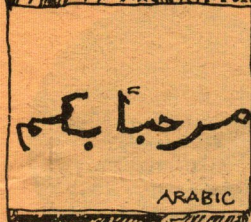 مرحباً بكم
ARABIC